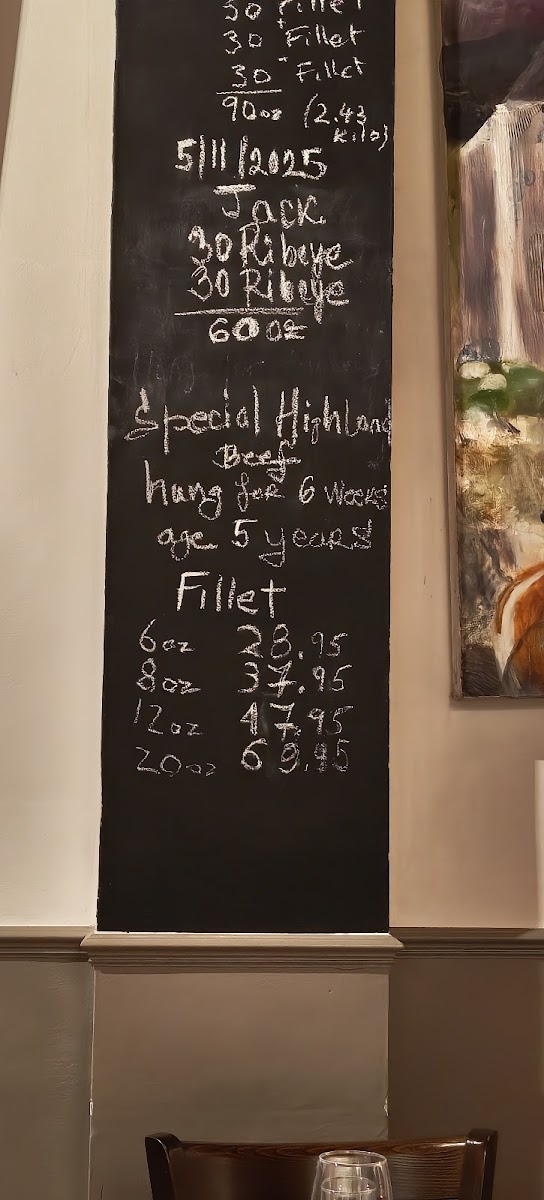 30 Fillet
30 Fillet
30 Fillet
90oz (2.43
Kilo)
5/11/2025
Jack
30 Ribeye
30 Ribeye
60oz
Special Highland
Beef
hung for 6 weeks
age 5 years
Fillet
6oz 28.95
8oz 37.95
12oz 47.95
20oz 69.95